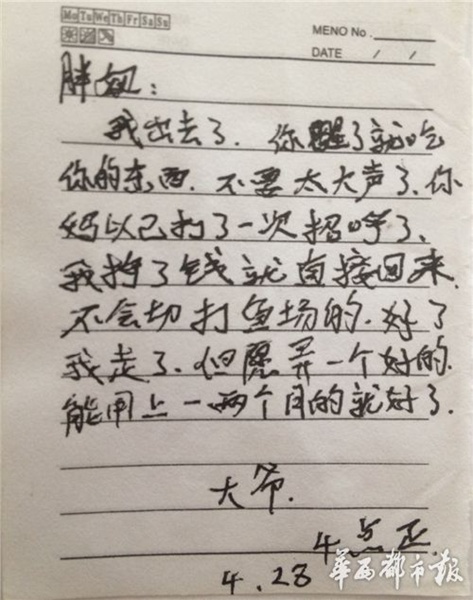 Mo Tu We Th Fr Sa Su
MEMO No.
DATE / /
胖妞:
我出去了.你醒了就吃
你的东西.不要太大声了.你
妈以己打了一次招呼了.
我挣了钱就直接回来.
不会切打鱼场的.好了
我走了.但愿弄一个好的.
能用上一两个月的就好了.
大爷.
4点正.
4.28
华西都市报